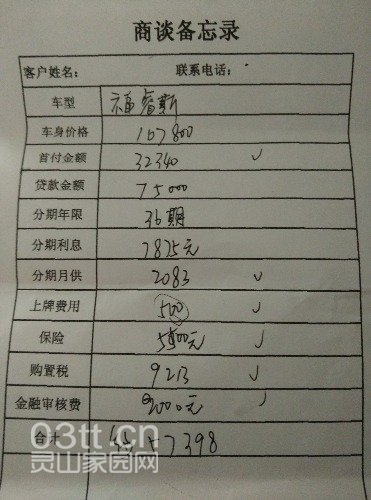 商谈备忘录
客户姓名： 联系电话：
车型 福睿斯
车身价格 107800
首付金额 32340 ✓
贷款金额 75000
分期年限 36期
分期利息 7875元
分期月供 2083 ✓
上牌费用 500 ✓
保险 5500元 ✓
购置税 9213 ✓
金融审核费 2000元 ✓
合计 57398
03tt.cn
灵山家园网